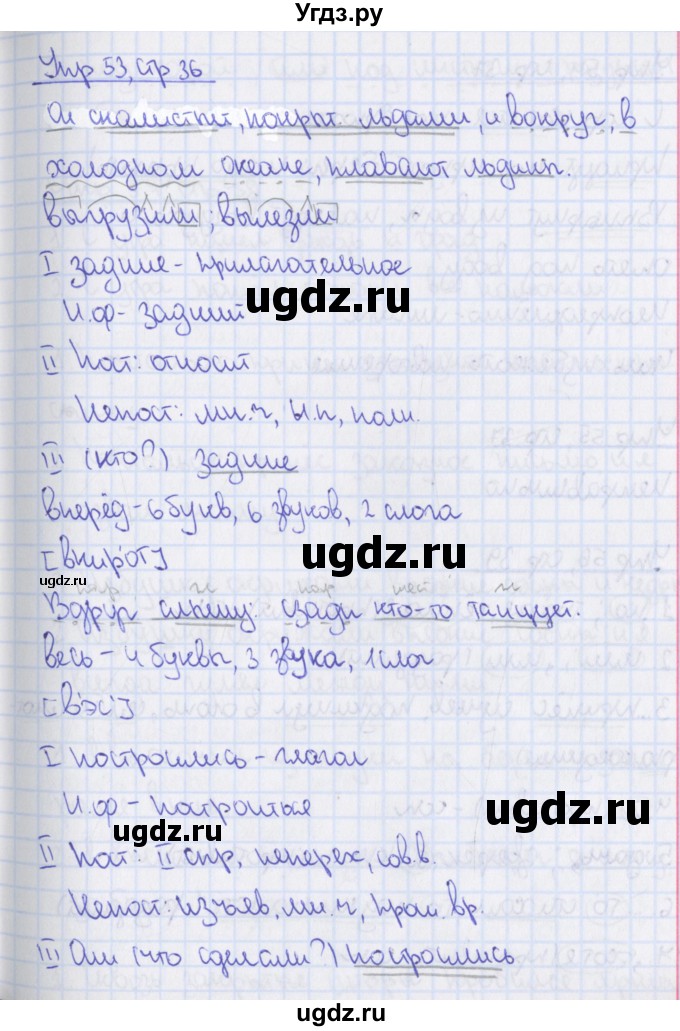 Угдз.ру
Упр 53, стр 36
Он скалистый, покрыт льдами, и вокруг, в
холодном океане, плавают льдины.
выгрузили, вылезли
I задние - прилагательное
Н.ф - задний
II Пост: относит
Непост: мн.ч, И.п, полн.
III (кто?) задние
вперёд - 6 букв, 6 звуков, 2 слога
[вп'ир'от]
Вдруг слышу: сзади кто-то танцует.
весь - 4 буквы, 3 звука, 1 слог
[в'эс']
I построились - глагол
Н.ф - построиться
II Пост: II спр, неперех, сов.в.
Непост: изъяв, мн.ч, прош.вр.
III Они (что сделали?) построились
ugdz.ru
ugdz.ru
ugdz.ru
ugdz.ru
ugdz.ru
ugdz.ru
ugdz.ru
ugdz.ru